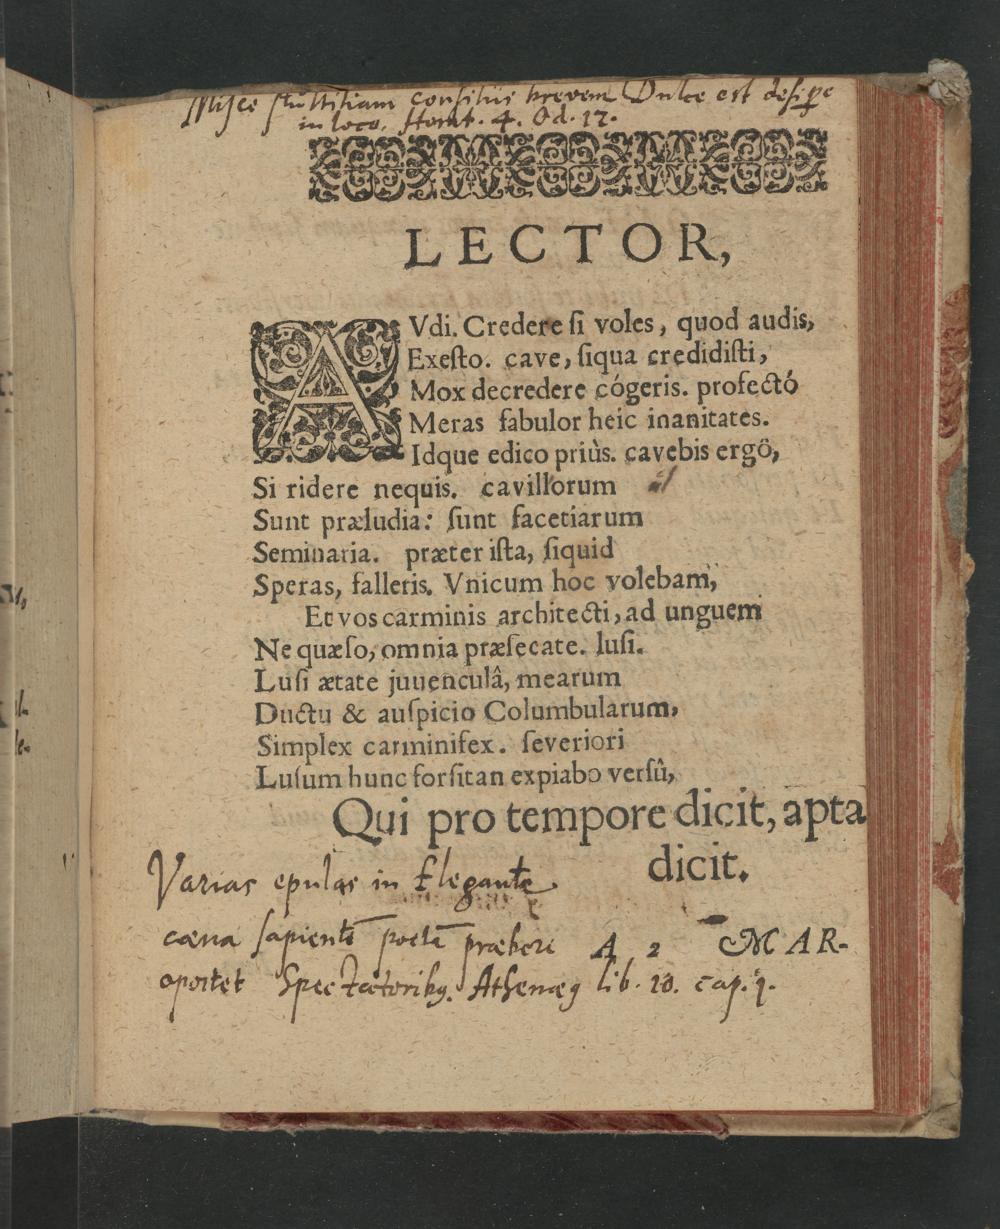 Misce stultitiam consiliis brevem Dulce est desipe
in loco. Horat. 4. Od. 12.
LECTOR,
AVdi. Credere ſi voles, quod audis,
Exeſto. cave, ſiqua credidiſti,
Mox decredere cógeris. profectó
Meras fabulor heic inanitates.
Idque edico priùs. cavebis ergö,
Si ridere nequis. cavillorum
Sunt præludia: ſunt facetiarum
Seminaria. præter iſta, ſiquid
Speras, falleris. Vnicum hoc volebam,
Et vos carminis architecti, ad unguem
Ne quæſo, omnia præſecate. luſi.
Luſi ætate juuenculâ, mearum
Ductu & auſpicio Columbularum,
Simplex carminifex. ſeveriori
Luſum hunc forſitan expiabo verſû,
Qui pro tempore dicit, apta
dicit.
Varias epulas in Elegante
cæna ſapientē poetā præbere
A 2 MAR-
oportet Spectatoribq. Athenæq lib. 10. cap. 1.